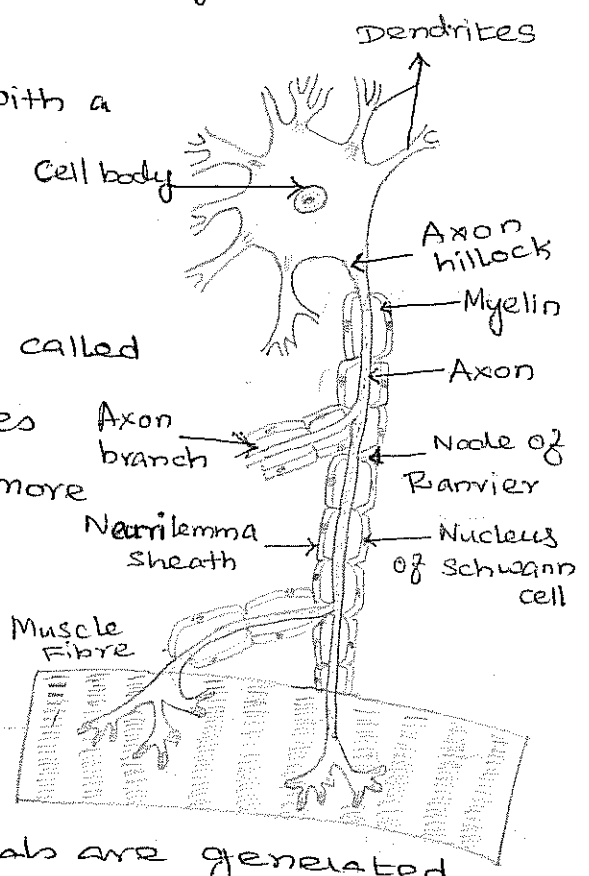 Dendrites
with a
Cell body
Axon
hillock
Myelin
called
Axon
es
Axon
branch
more
Node of
Ranvier
Neurilemma
Sheath
Nucleus
of Schwann
cell
Muscle
Fibre
are generated